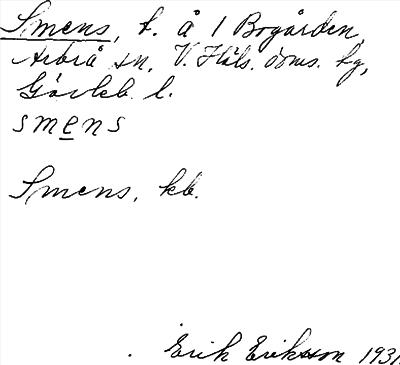 Smens, t. å 1 Bogården,
Arbrå sn, V. Häls. doms. tg,
Gävleb. l.
smens
Smens, kb.
Erik Eriksson 1931.